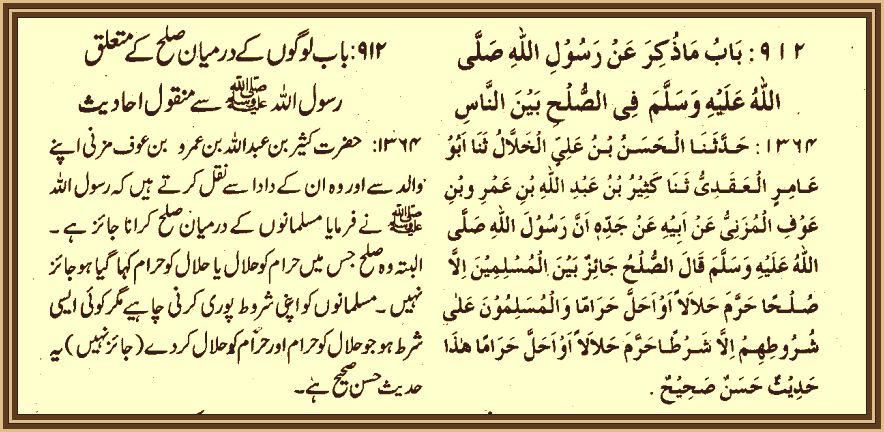 ۹۱۲: بَابُ مَاذُكِرَ عَنْ رَسُوْلِ اللهِ صَلَّى
اللهُ عَلَيْهِ وَسَلَّمَ فِى الصُّلْحِ بَيْنَ النَّاسِ
۱۳۶۴: حَدَّثَنَا الْحَسَنُ بْنُ عَلِيِّ الْخَلَّالُ ثَنَا اَبُوْ
عَامِرٍ الْعَقَدِىُّ ثَنَا كَثِيْرُ بْنُ عَبْدِ اللهِ بْنِ عَمْرِ وبْنِ
عَوْفِ الْمُزَنِىُّ عَنْ اَبِيْهِ عَنْ جَدِّهٖ اَنَّ رَسُوْلَ اللهِ صَلَّى
اللهُ عَلَيْهِ وَسَلَّمَ قَالَ الصُّلْحُ جَائِزٌ بَيْنَ الْمُسْلِمِيْنَ اِلَّا
صُلْحًا حَرَّمَ حَلَالاً اَوْاَحَلَّ حَرَامًا وَالْمُسْلِمُوْنَ عَلٰى
شُرُوْطِهِمْ اِلَّا شَرْطًا حَرَّمَ حَلَالاً اَوْ اَحَلَّ حَرَامًا هٰذَا
حَدِيْثٌ حَسَنٌ صَحِيْحٌ .
۹۱۲: باب لوگوں کے درمیان صلح کے متعلق
رسول اللہ ﷺ سے منقول احادیث
۱۳۶۴: حضرت کثیر بن عبداللہ بن عمرو بن عوف مزنی اپنے
والد سے اور وہ ان کے دادا سے نقل کرتے ہیں کہ رسول اللہ
ﷺ نے فرمایا مسلمانوں کے درمیان صلح کرانا جائز ہے۔
البتہ وہ صلح جس میں حرام کو حلال یا حلال کو حرام کہا گیا ہو جائز
نہیں۔ مسلمانوں کو اپنی شروط پوری کرنی چاہیے مگر کوئی ایسی
شرط ہو جو حلال کو حرام اور حرام کو حلال کر دے (جائز نہیں) یہ
حدیث حسن صحیح ہے۔